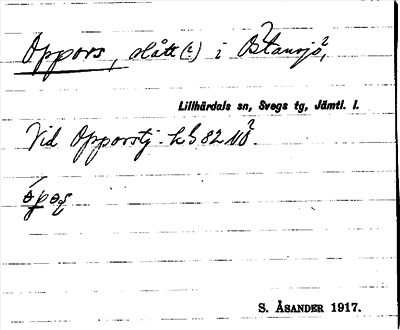 Oppors, slått(?) i Östansjö,
Lillhärdals sn, Svegs tg, Jämtl. l.
Vid Opporstj.
S. ÅSANDER 1917.